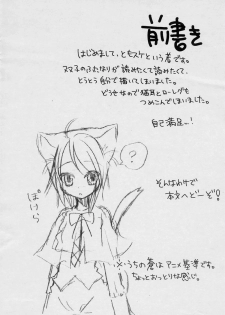 前書き
はじめまして、ともスケという者です。
双子のふたなりが読みたくて読みたくて、
とうとう自分で描いてしまいました。
どうせなので猫耳とローレグも
つめこんでしまいました。
自己満足ー!
?
ぽけら
そんなわけで
本文へどーぞ!
×うちの蒼はアニメ基準です。
ちょっとおっとりな感じ。